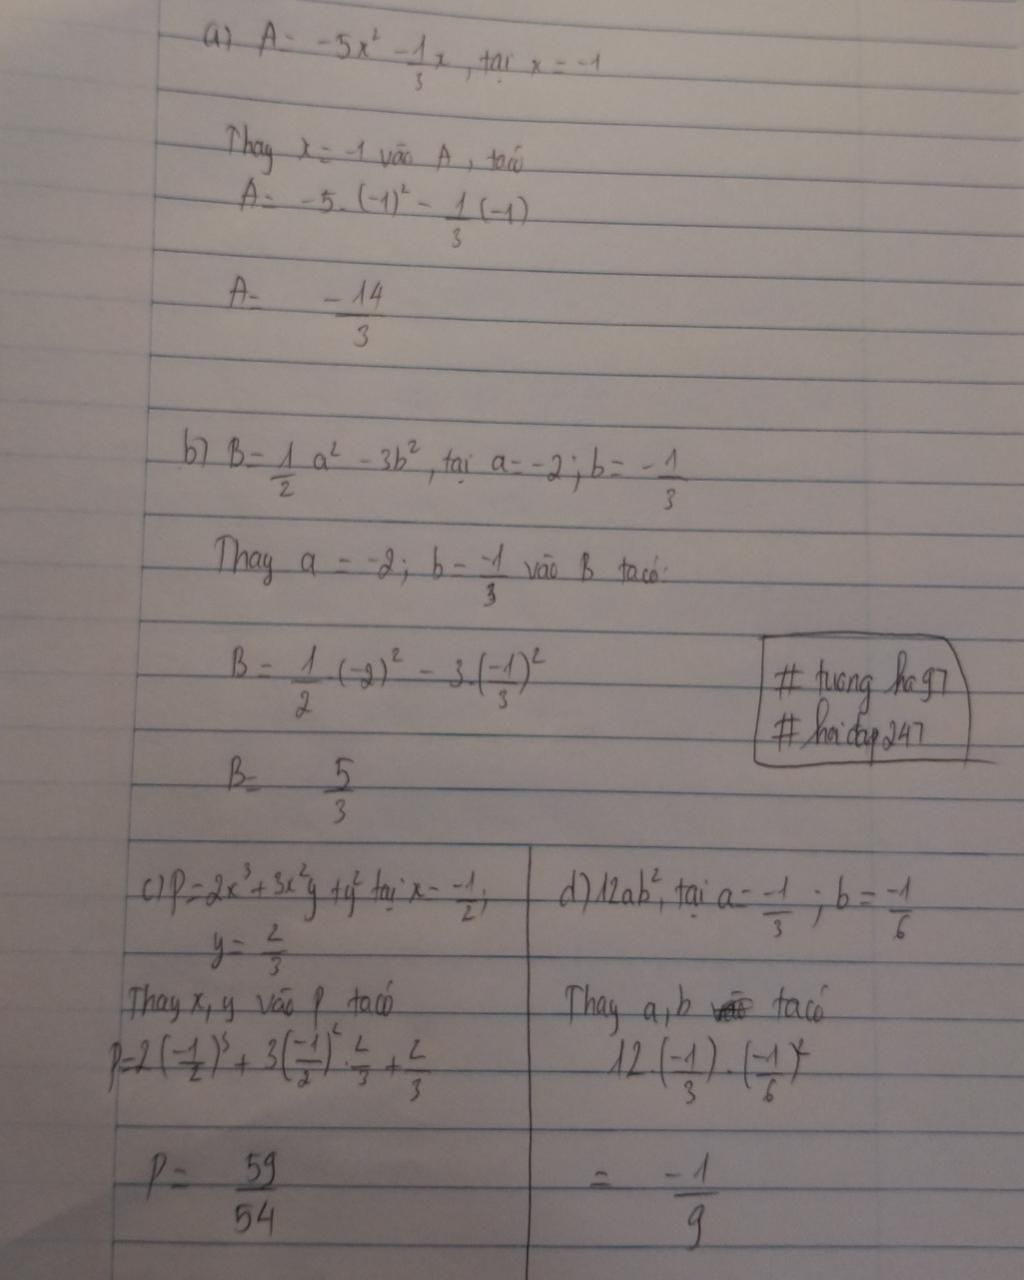 a) A = -5x² - 1/3 x, tại x = -1
Thay x = -1 vào A, ta có
A = -5. (-1)² - 1/3 (-1)
A = -14/3
b) B = 1/2 a² - 3b², tại a = -2; b = -1/3
Thay a = -2; b = -1/3 vào B ta có:
B = 1/2 . (-2)² - 3. (-1/3)²
B = 5/3
# tuong ha97
# hoidap247
c) P = 2x³ + 3x²y + y² tại x = -1/2;
y = 2/3
Thay x, y vào P ta có
P = 2 (-1/2)³ + 3 (-1/2)² . 2/3 + 2/3
P = 59/54
d) 12ab², tại a = -1/3 ; b = -1/6
Thay a, b ta có
12. (-1/3) . (-1/6)²
= -1/9